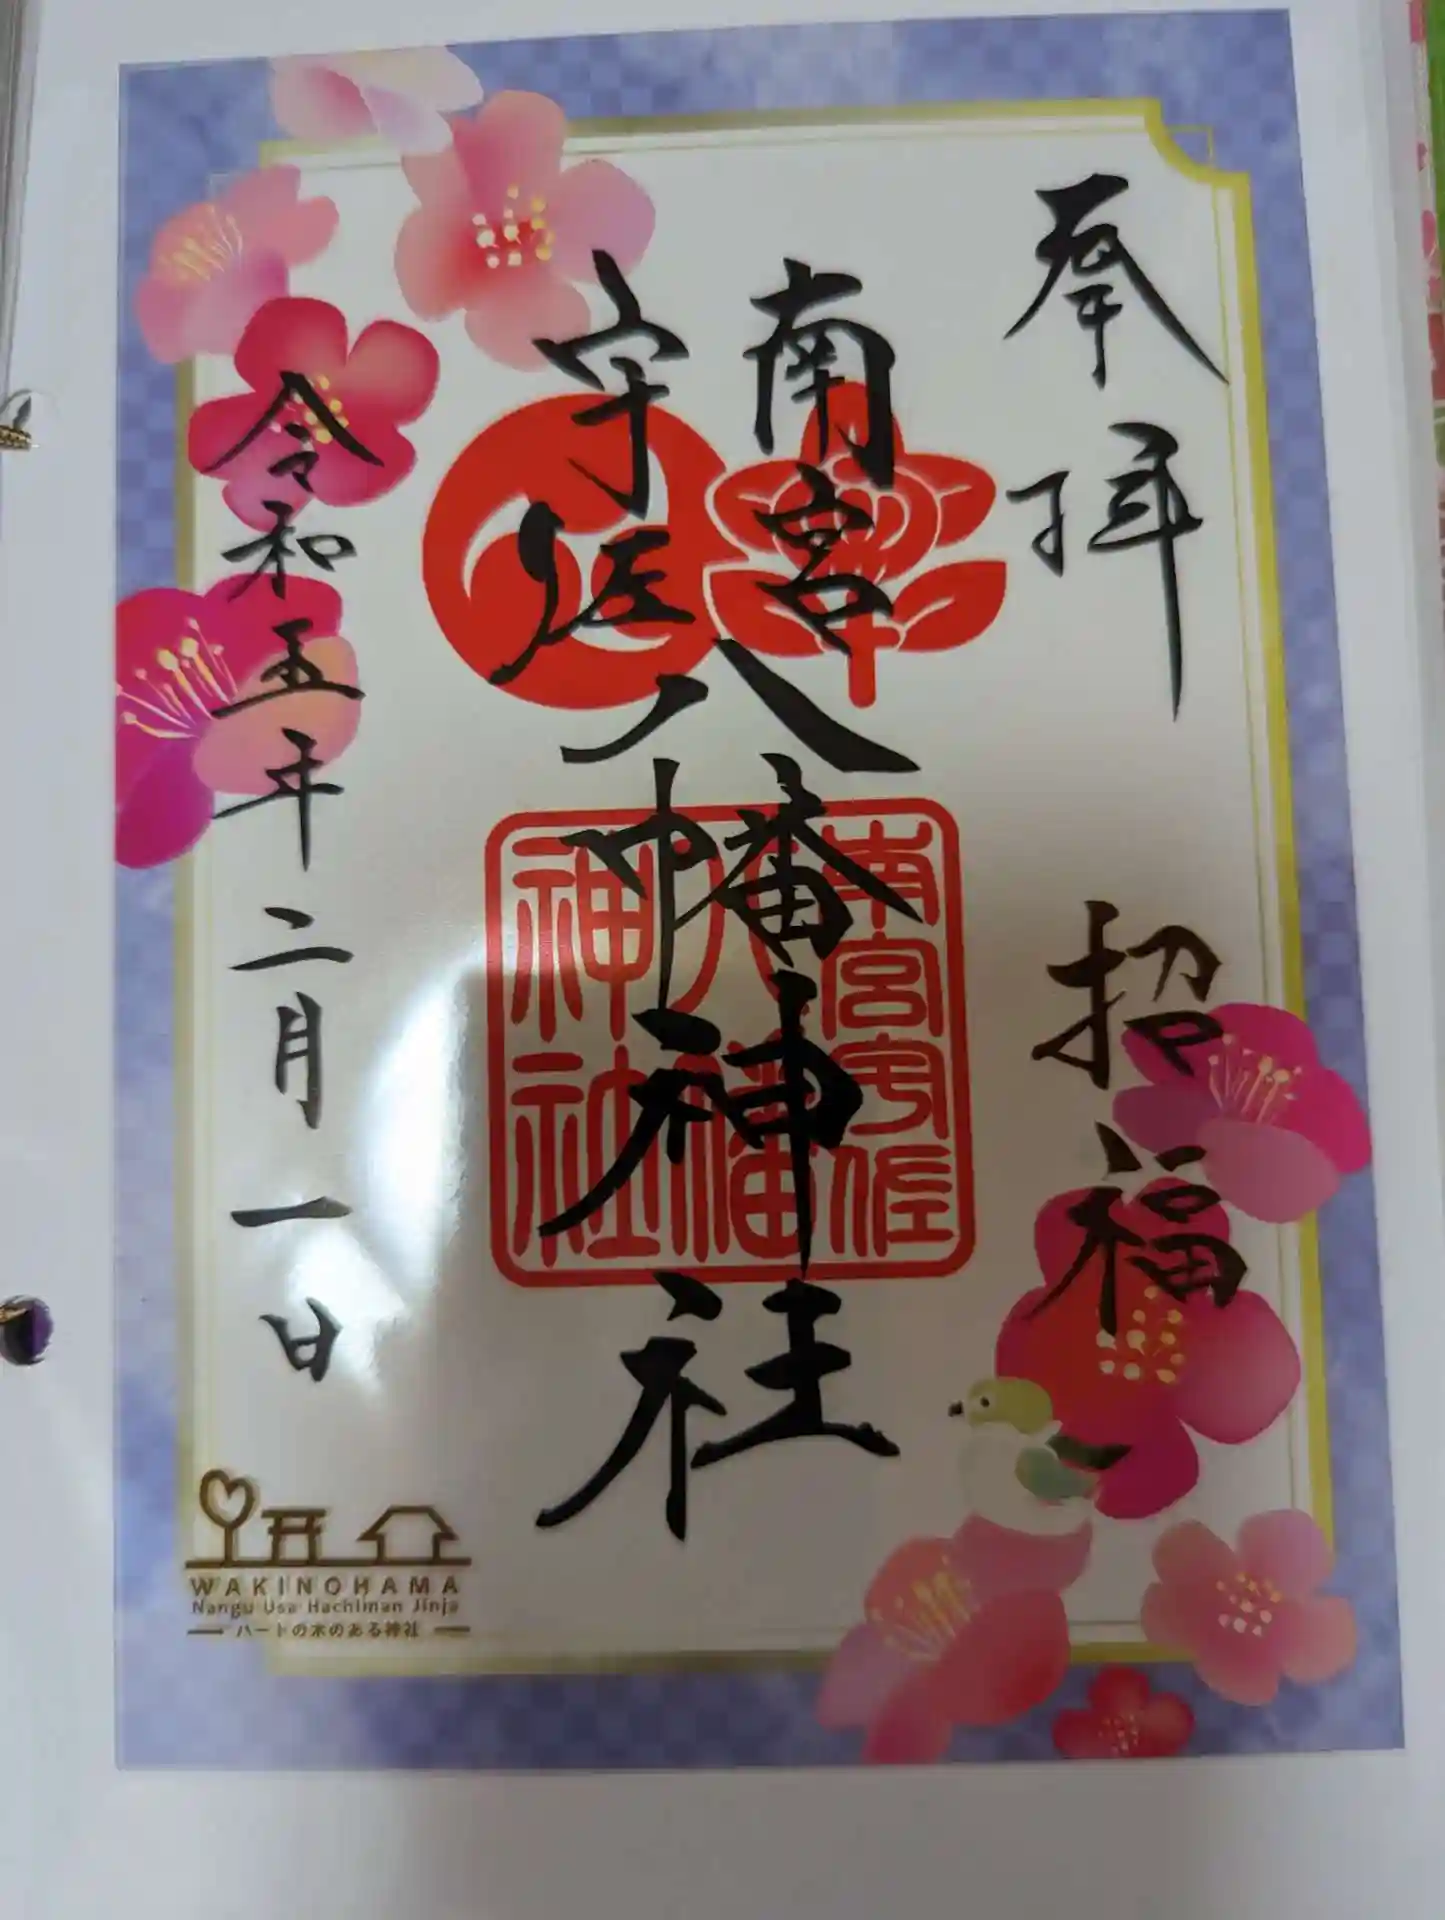 奉拝
招福
南宮
宇佐
八幡神社
南宮宇佐
八幡
神社
令和五年二月一日
WAKINOHAMA
Nangu Usa Hachiman Jinja
ハートの木のある神社